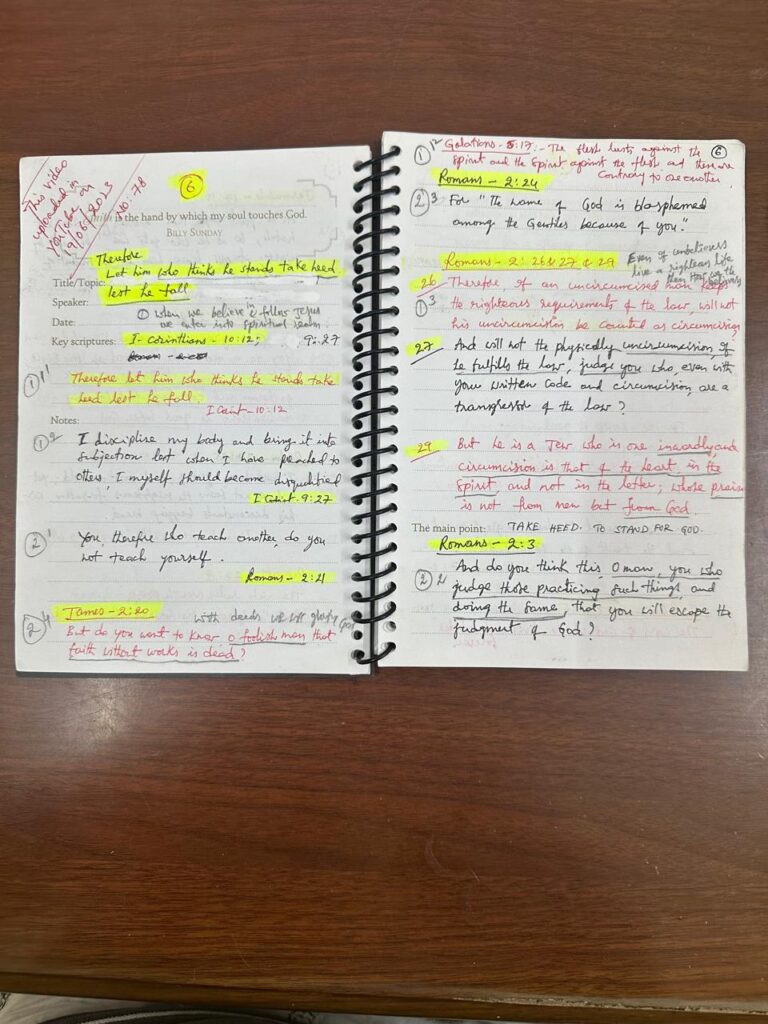 This video
uploaded in
YouTube on
19/06/2023
NO: 78
6
Faith is the hand by which my soul touches God.
BILLY SUNDAY
Therefore
Let him who thinks he stands take heed
lest he fall
Title/Topic:
Speaker: ① when we believe in & follow Jesus
Date: we enter into spiritual realm
Key scriptures: I - corinthians - 10:12; 9:27
① 1 Therefore let him who thinks he stands take
heed lest he fall.
I Corint - 10:12
Notes:
① 2 I discipline my body and bring it into
subjection lest when I have preached to
others, I myself should become disqualified
I Corint - 9:27
② 1 You, therefore who teach another, do you
not teach yourself.
Romans - 2:21
② 4 James - 2:20 with deeds we will glofy God
But do you want to know o foolish man that
faith without works is dead?
① 12 Galations - 5:17:- The flesh lusts against the
Spirit and the Spirit against the flesh and these are
contrary to one another
6
Romans - 2:24
② 3 For "The name of God is blasphemed
among the Gentiles because of you."
Romans - 2:26 & 27 & 29
Even if unbelievers
live a righteous life
than that we the
believers
26 Therefore, if an uncircumcised man keeps
① 3 the righteous requirements of the law, will not
his uncircumcision be counted as circumcision
27 And will not the physically uncircumcision, if
he fulfills the law, judge you who, even with
your written code and circumcision, are a
transgressor of the law?
29 But he is a Jew who is one inwardly and
circumcision is that of the heart, in the
Spirit, and not in the letter; whose praise
is not from men but from God.
The main point: TAKE HEED. TO STAND FOR GOD.
Romans - 2:3
② 2 And do you think this, O man, you who
judge those practicing such things and
doing the same, that you will escape the
judgment of God?